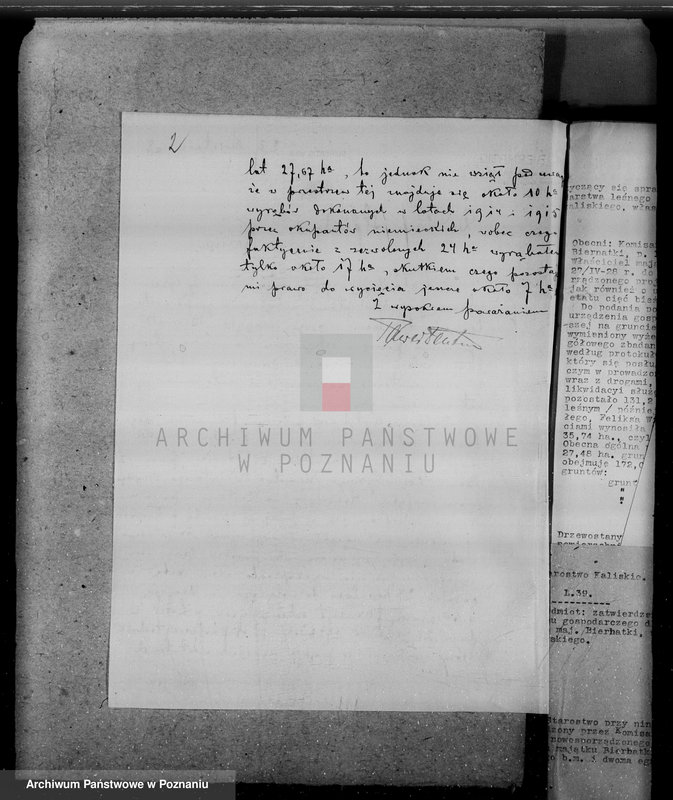 2
lat 27,67 ha, to jednak nie wziął pod uwagę
że w przestrzeni tej znajduje się około 10 ha
wyrębów dokonanych w latach 1914 i 1915
przez okupantów niemieckich, wobec czego
faktycznie z zezwolonych 24 ha wyrąbałem
tylko około 17 ha, skutkiem czego pozostaje
mi prawo do wycięcia jeszcze około 7 ha
Z wysokiem poważaniem
ARCHIWUM PAŃSTWOWE
W POZNANIU
yczący się spra
arstwa leśnego
aliskiego, włas
Obecni: Komisa
Biernatki, p.
Właściciel mają
27/IV-28 r. do
rządzonego proj
jak również o
etatu cięć bież
Do podania po
urządzenia gosp
szej na gruncie
wymieniony wyże
gółowego zbadan
według protokuł
który się posłu
czym w prowadzo
wraz z drogami,
likwidacyi służ
pozostało 131,2
leśnym / późnie
łego, Feliksa W
ciami wynosiła
35,74 ha., czyl
Obecna ogólna
27,48 ha. grun
obejmuję 172,0
gruntów:
grunt
"
"
Drzewostany
arostwo Kaliskie.
L.39.
edmiot: zatwierdze
u gospodarczego d
maj. Biernatki,
skiego.
Starostwo przy nin
zony przez Komisa
nowosporządzonego
majątku Biernatk
o b.m. z dwoma eg
Archiwum Państwowe w Poznaniu